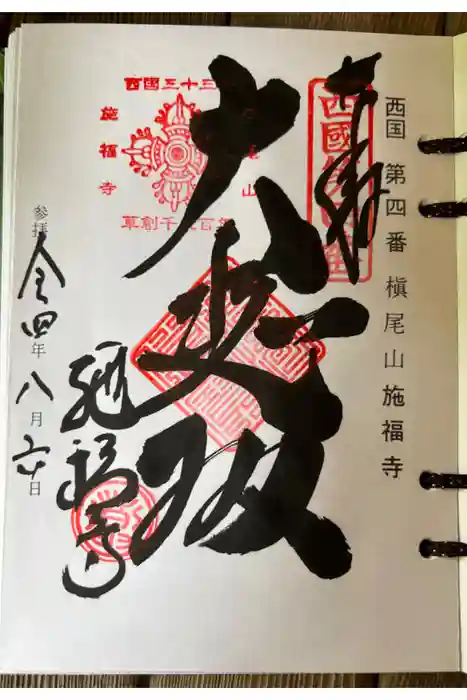 西国 第四番 槇尾山施福寺
奉拝
西國第四番
大悲殿
西国三十三
施福寺
尾山
草創千三百年
施福寺
参拝 令四年八月六日